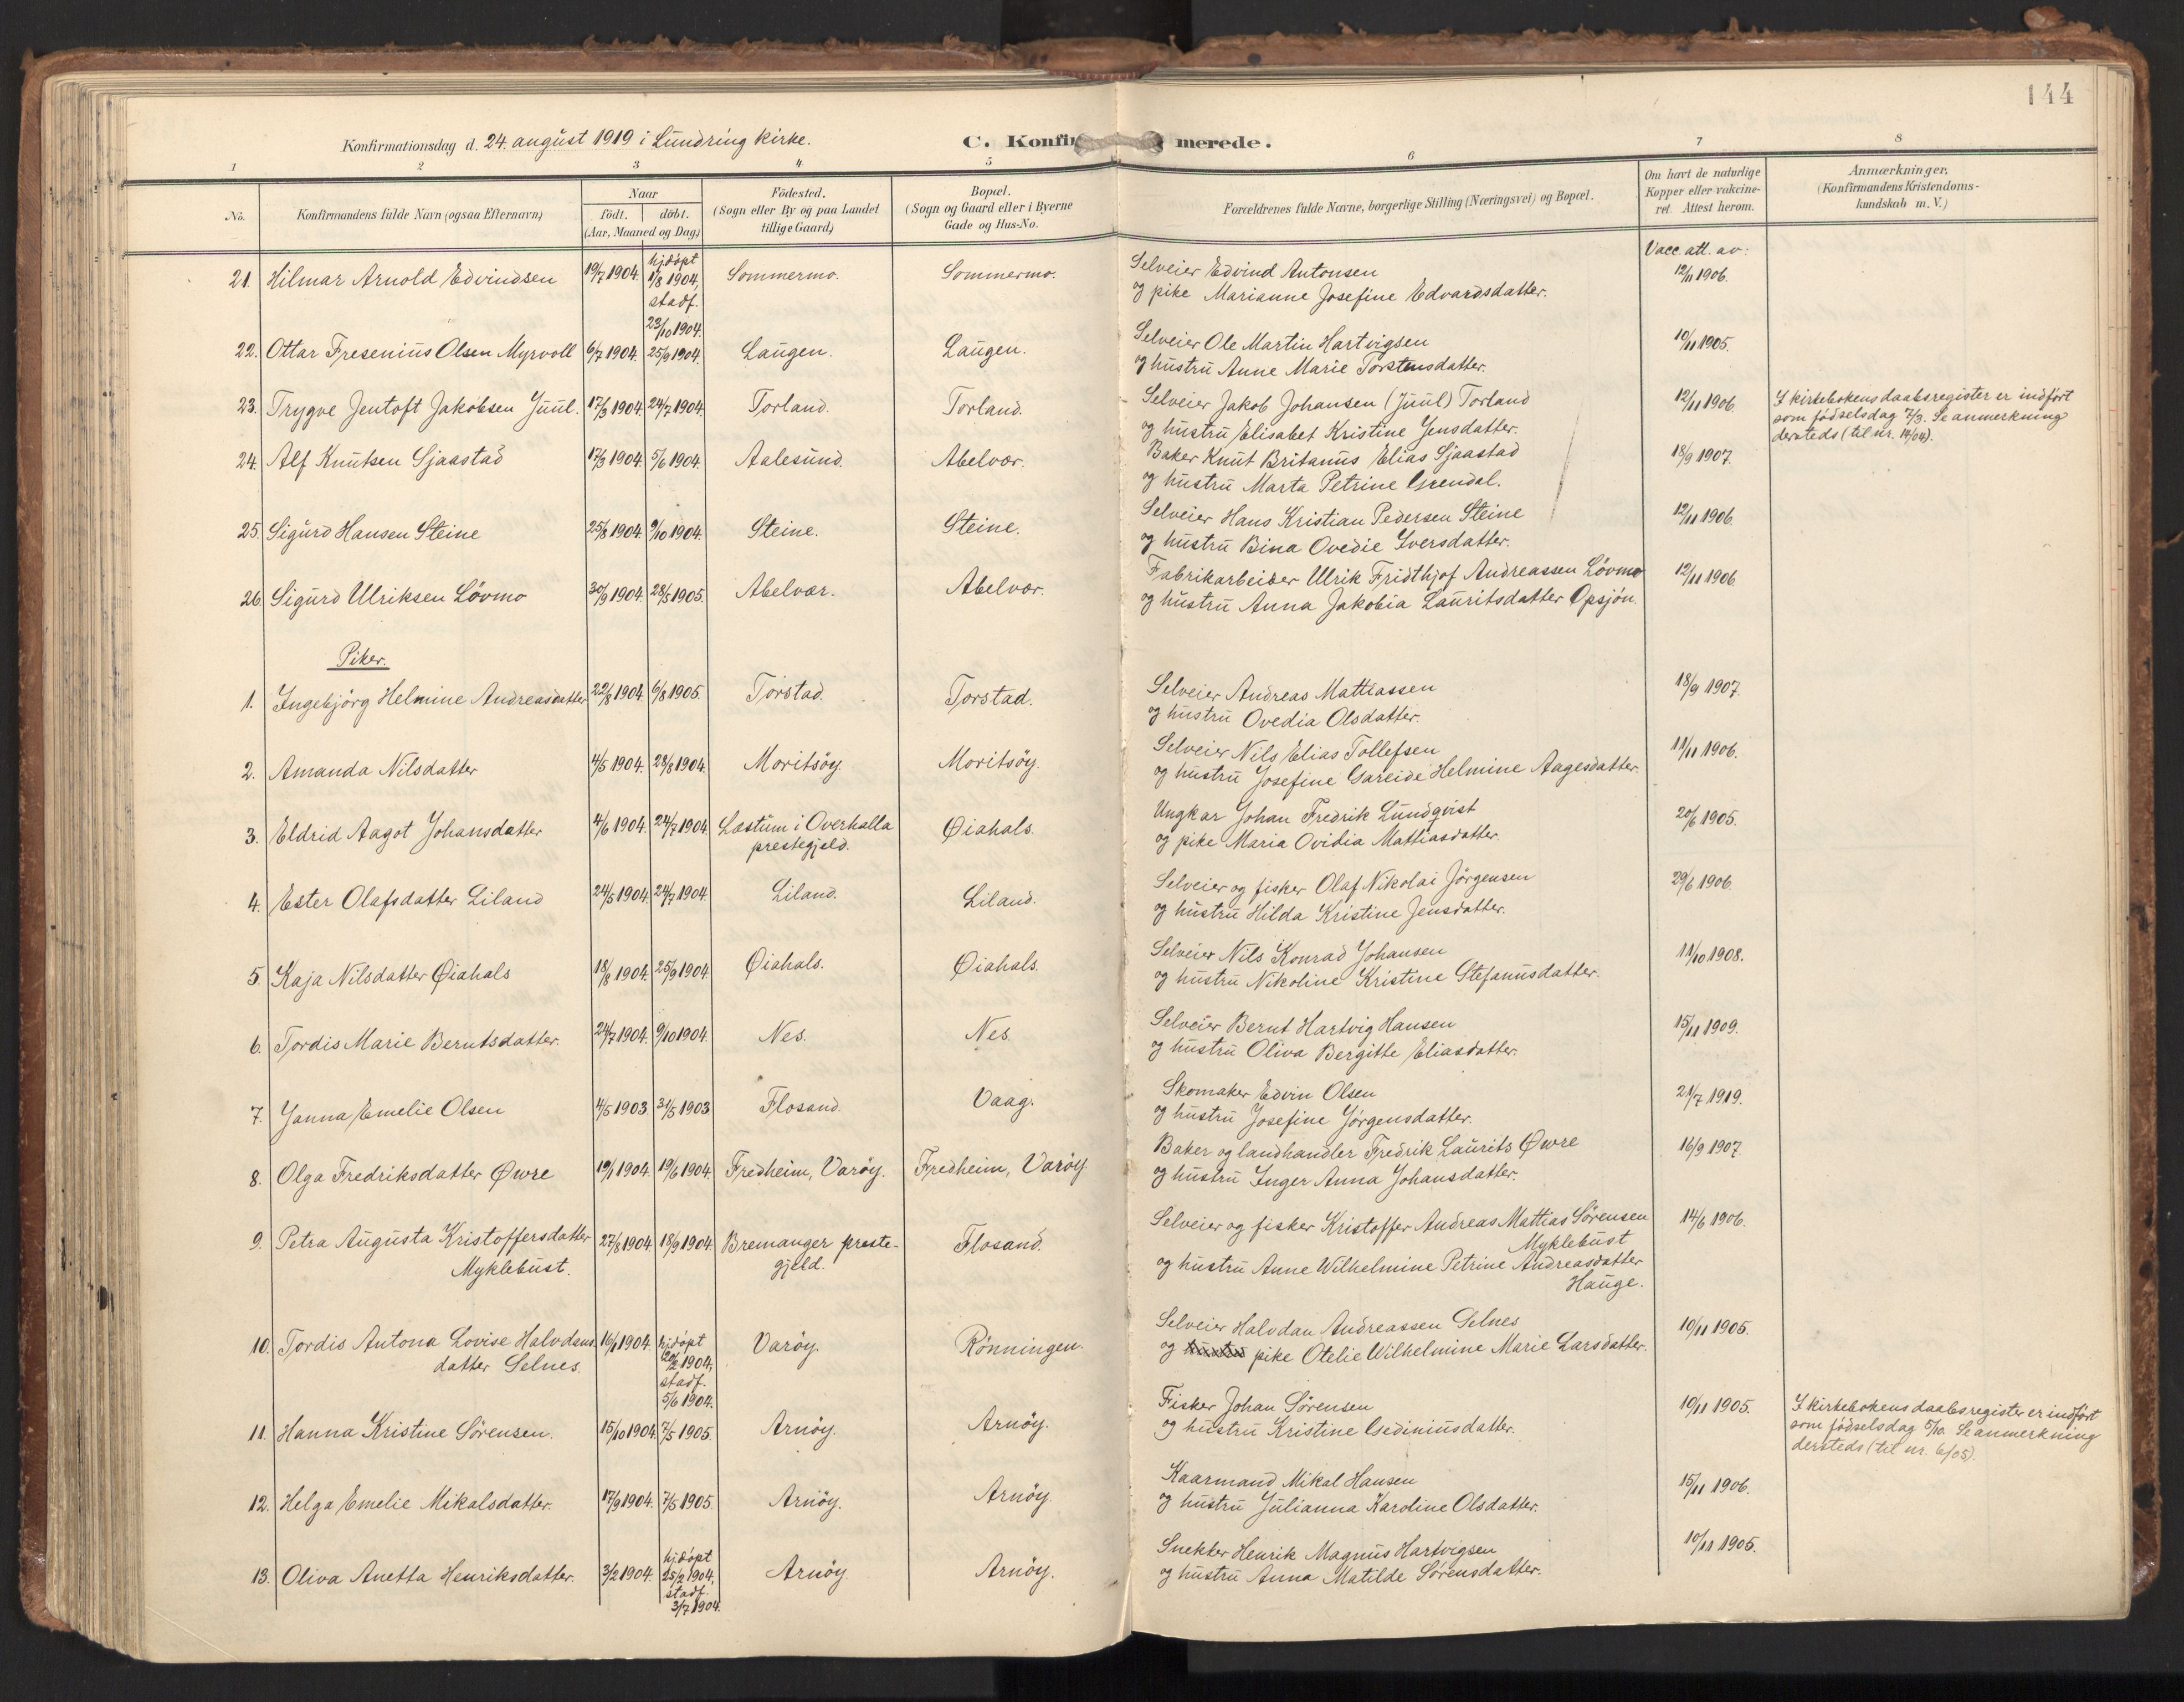 144
Konfirmationsdag d. 24. august 1919 i Lundring kirke.
C. Konfir merede.
1 2 3 4 5 6 7 8
No.
Konfirmandens fulde Navn (ogsaa Efternavn)
Naar
födt. döbt.
(Aar, Maaned og Dag.)
Födested.
(Sogn eller By og paa Landet
tillige Gaard)
Bopæl.
(Sogn og Gaard eller i Byerne
Gade og Hus-No.
Forældrenes fulde Navne, borgerlige Stilling (Næringsvei) og Bopæl.
Om havt de naturlige
Kopper eller vakcine-
ret. Attest herom.
Anmærkninger,
(Konfirmandens Kristendoms-
kundskab m. V.)
Vacc. att. av:
21. Hilmar Arnold Edvindsen 19/7 1904. hj.døpt 1/8 1904, stadf. 23/10 1904. Sommermo. Sommermo. Selveier Edvind Antonsen 12/11 1906.
og pike Marianne Josefine Edvardsdatter.
22. Ottar Fresenius Olsen Myrvoll 6/7 1904. 25/9 1904. Laugen. Laugen. Selveier Ole Martin Hartvigsen 10/11 1905.
og hustru Anne Marie Torstensdatter.
23. Trygve Jentoft Jakobsen Juul. 17/3 1904. 24/7 1904. Torland. Torland. Selveier Jakob Johansen (Juul) Torland 12/11 1906. I kirkebokens daabsregister er indført
og hustru Elisabet Kristine Jensdatter. som fødselsdag 7/3. Se anmerkning
dersteds (til nr. 14/04).
24. Alf Knutsen Sjaastad 17/3 1904. 5/6 1904. Aalesund. Abelvær. Baker Knut Britanus Elias Sjaastad 18/9 1907.
og hustru Marta Petrine Grendal.
25. Sigurd Hansen Steine 25/8 1904. 9/10 1904. Steine. Steine. Selveier Hans Kristian Pedersen Steine 12/11 1906.
og hustru Bina Ovedie Iversdatter.
26. Sigurd Ulriksen Lövmo 30/9 1904. 28/5 1905. Abelvær. Abelvær. Fabrikarbeider Ulrik Fridthjof Andreassen Lövmo 12/11 1906
og hustru Anna Jakobia Lauritsdatter Opsjön.
Piker.
1. Ingebjörg Helmine Andreasdatter 22/8 1904. 6/8 1905. Torstad. Torstad. Selveier Andreas Mattiassen 18/9 1907.
og hustru Ovedia Olsdatter.
2. Amanda Nilsdatter 4/5 1904. 28/8 1904. Moritsöy. Moritsöy. Selveier Nils Elias Tollefsen 11/11 1906.
og hustru Josefine Helmine Aagesdatter.
3. Eldrid Aagot Johansdatter 4/6 1904. 24/7 1904. Læstum i Overhalla Øiahals. Ungkar Johan Fredrik Lundqvist 20/6 1905.
prestegjeld. og pike Maria Ovidia Mattiasdatter.
4. Ester Olafsdatter Liland 24/5 1904. 24/7 1904. Liland. Liland. Selveier og fisker Olaf Nikolai Jörgensen 29/6 1906.
og hustru Hilda Kristine Jensdatter.
5. Kaja Nilsdatter Øiahals 18/8 1904. 25/9 1904. Øiahals. Øiahals. Selveier Nils Konrad Johansen 11/10 1908.
og hustru Nikoline Kristine Stefanusdatter.
6. Tordis Marie Berntsdatter. 24/7 1904. 9/10 1904. Nes. Nes. Selveier Bernt Hartvig Hansen 15/11 1909.
og hustru Oliva Bergitte Eliasdatter.
7. Janna Emelie Olsen 4/5 1903 31/5 1903 Flosand. Vaag. Skomaker Edvin Olsen 21/7 1919.
og hustru Josefine Jörgensdatter.
8. Olga Fredriksdatter Øwre 19/1 1904. 19/6 1904. Fredheim, Varöy. Fredheim, Varöy. Baker og landhandler Fredrik Laurits Øwre 16/9 1907.
og hustru Inger Anna Johansdatter.
9. Petra Augusta Kristoffersdatter 27/8 1904. 18/9 1904. Bremanger preste- Flosand. Selveier og fisker Kristoffer Andreas Mattias Sörensen 14/6 1906.
Myklebust. gjeld. Myklebust
og hustru Anne Wilhelmine Petrine Andreasdatter
Hauge.
10. Tordis Antona Lovise Halvdans 16/1 1904. hj.døpt 20/2 1904, stadf. 5/6 1904. Varöy. Rönningen. Selveier Halvdan Andreassen Selnes 10/11 1905.
datter Selnes. og pike Otelie Wilhelmine Marie Larsdatter.
11. Hanna Kristine Sörensen. 15/10 1904. 7/5 1905. Arnöy. Arnöy. Fisker Johan Sörensen 10/11 1905. I kirkebokens daabsregister er indført
og hustru Kristine Gediniusdatter. som fødselsdag 5/10. Se anmerkning
dersteds (til nr. 6/05).
12. Helga Emelie Mikalsdatter. 17/9 1904. 7/5 1905. Arnöy. Arnöy. Kaarmand Mikal Hansen 15/11 1906.
og hustru Julianna Karoline Olsdatter.
13. Oliva Anetta Henriksdatter. 3/2 1904. hj.døpt 25/2 1904, stadf. 3/7 1904. Arnöy. Arnöy. Snekker Henrik Magnus Hartvigsen 10/11 1905.
og hustru Anna Matilde Sörensdatter.